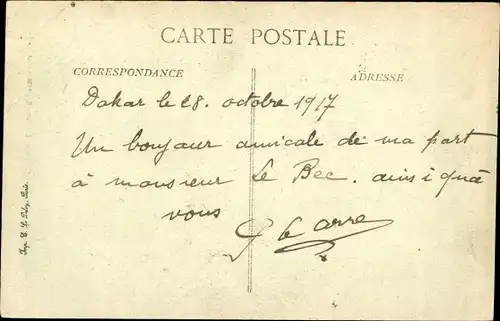 CARTE POSTALE
CORRESPONDANCE
ADRESSE
Dakar le 28. octobre 1917
Un bonjour amicale de ma part
à monsieur Le Bec. ainsi quà
vous